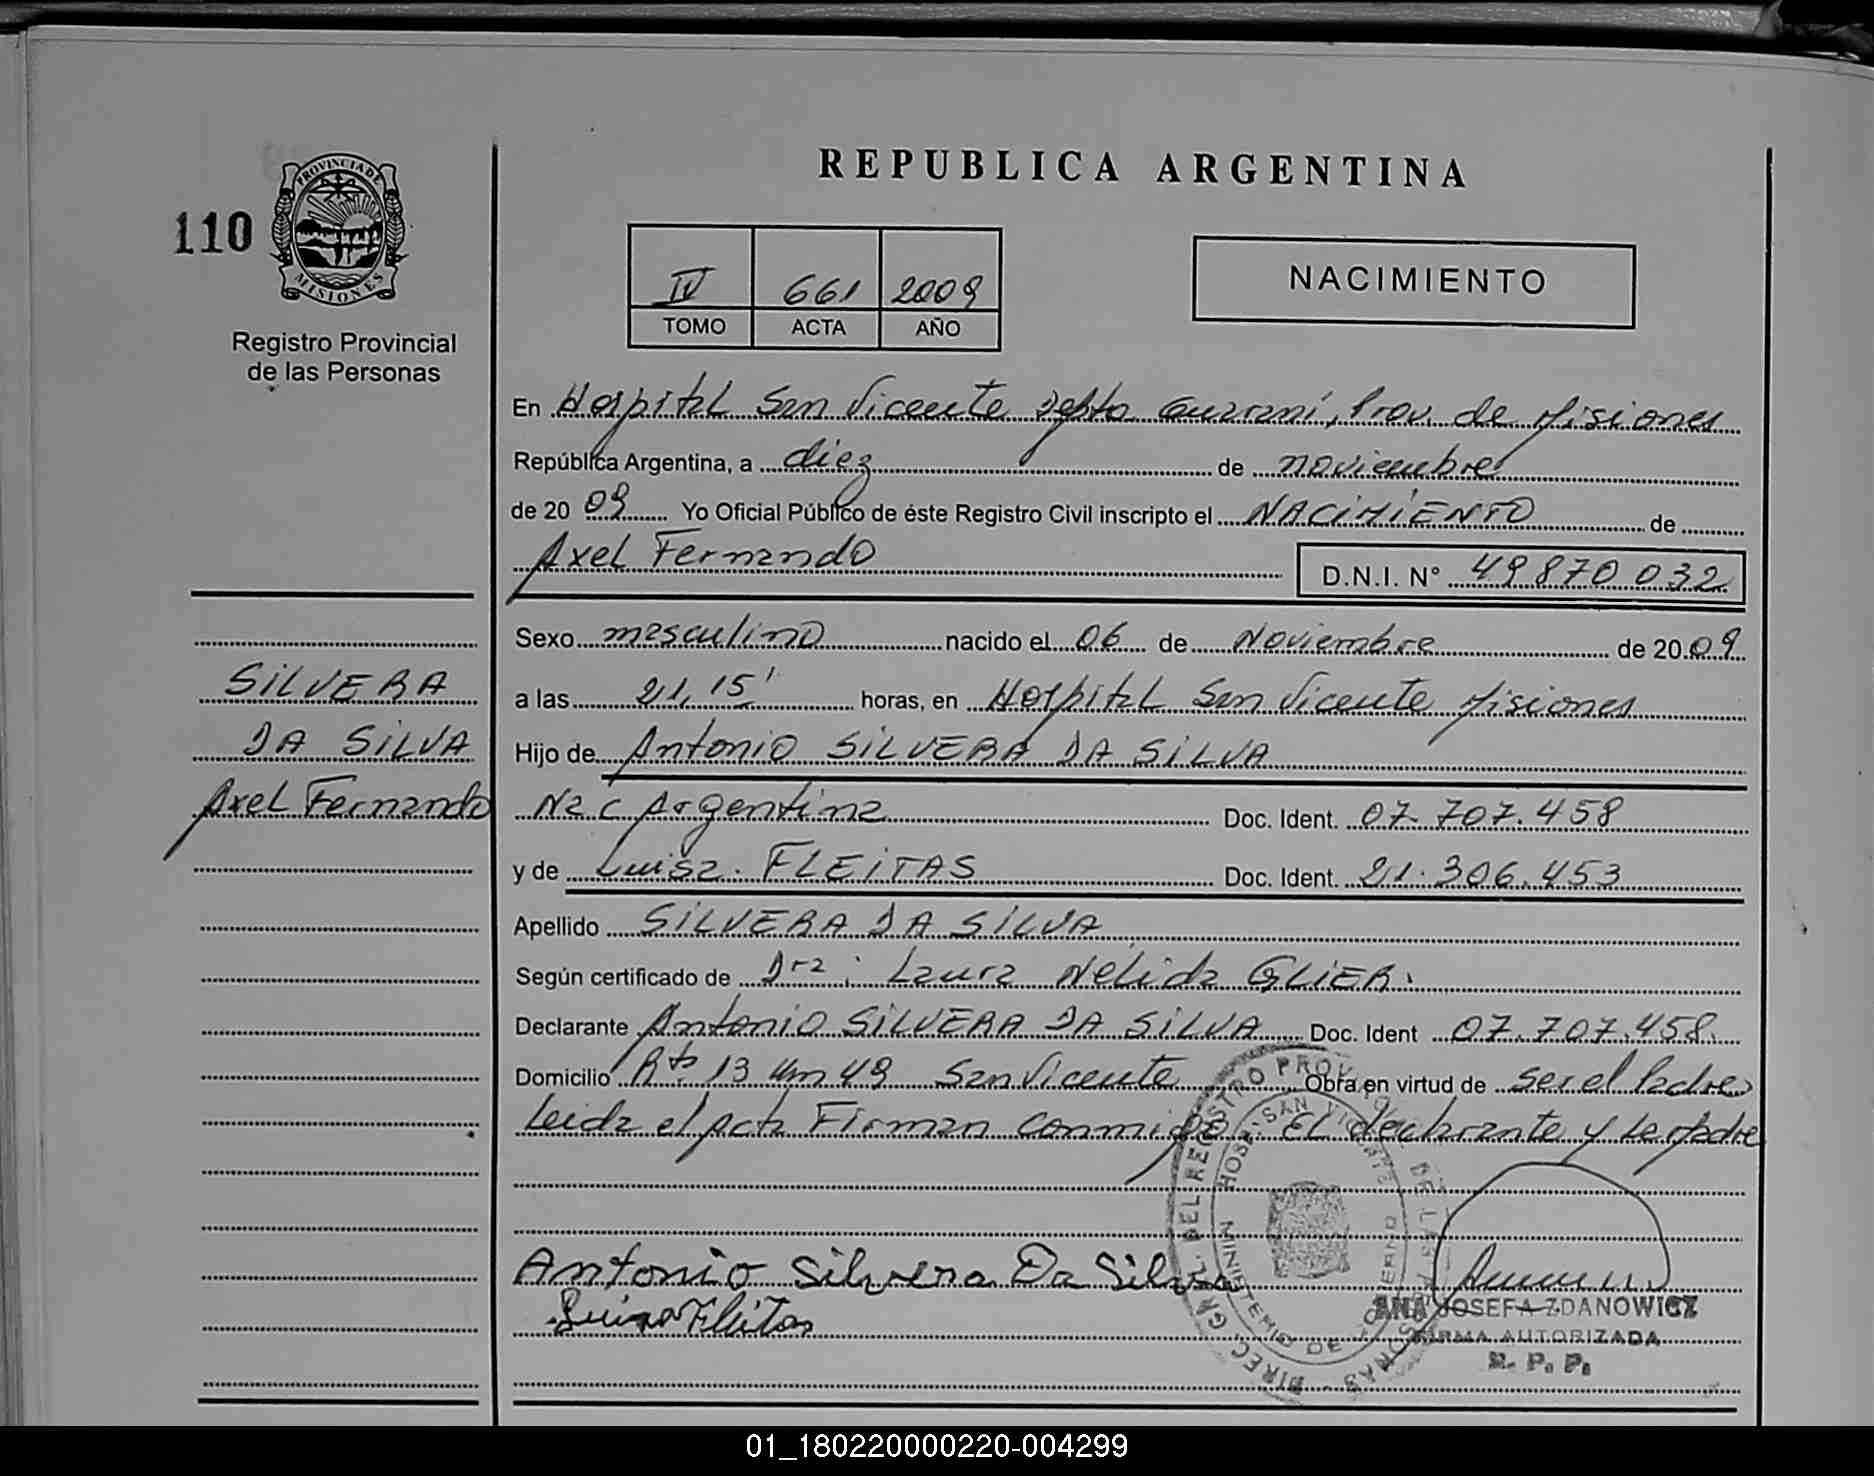 REPUBLICA ARGENTINA
110
PROVINCIA DE
MISIONES
Registro Provincial
de las Personas
IV 661 2009
TOMO ACTA AÑO
NACIMIENTO
En Hospital San Vicente Depto Guaraní, Prov. de Misiones
República Argentina, a diez de noviembre
de 2009 Yo Oficial Público de éste Registro Civil inscripto el NACIMIENTO de
Axel Fernando D.N.I. N° 49870032
Sexo masculino nacido el 06 de Noviembre de 2009
a las 21,15' horas, en Hospital San Vicente Misiones
Hijo de Antonio SILVERA DA SILVA
Nac Argentina Doc. Ident. 07.707.458
y de Luisa FLEITAS Doc. Ident. 21.306.453
Apellido SILVERA DA SILVA
Según certificado de Dra: Laura Nelida GLIER.
Declarante Antonio SILVERA DA SILVA Doc. Ident 07.707.458.
Domicilio Rta 13 Km 49 San Vicente Obra en virtud de ser el Padre
Leida el Acta Firman conmigo El declarante y
SILVERA
DA SILVA
Axel Fernando
Antonio Silvera Da Silva
Luisa Fleitas
DIREC. GRAL. DEL REGISTRO PROV. DE LAS PERSONAS
HOSP. SAN VICENTE
MINISTERIO DE GOBIERNO
ANA JOSEFA ZDANOWICZ
FIRMA AUTORIZADA
R. P. P.
01_180220000220-004299